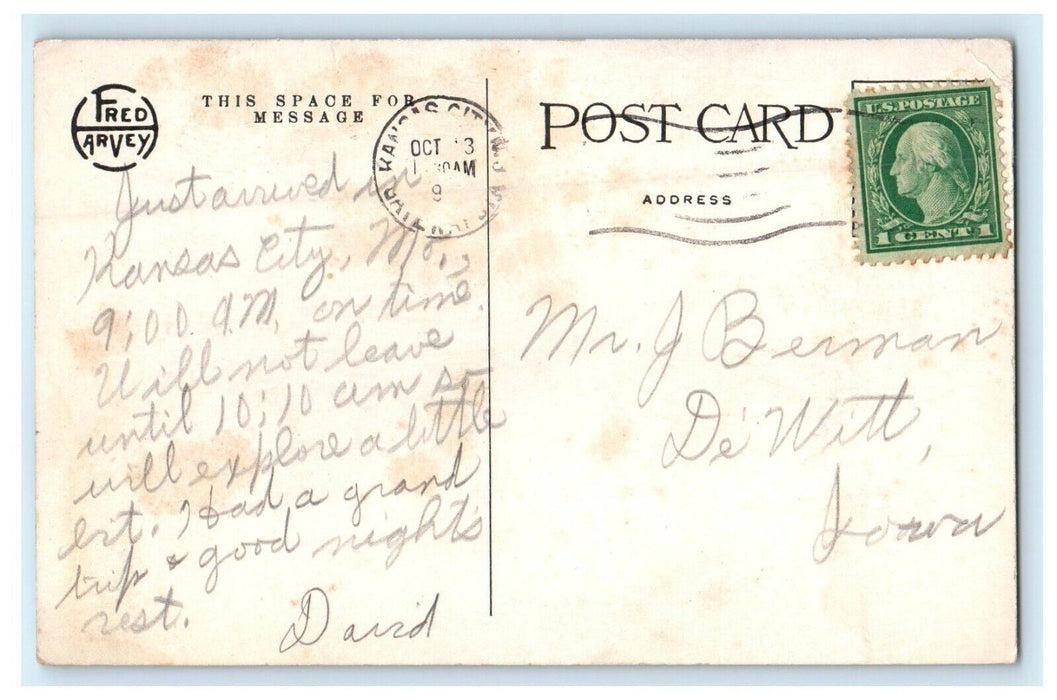 FRED
HARVEY
THIS SPACE FOR
MESSAGE
KANSAS CITY
OCT 13
AM
POST CARD
ADDRESS
U.S. POSTAGE
1 CENT 1
Just arrived in
Kansas City, Mo.,
9:00 A.M. on time.
Will not leave
until 10:10 am so
will explore a little
bit. Had a grand
trip & good night's
rest.
David
Mr. J Berman
De Witt,
Iowa